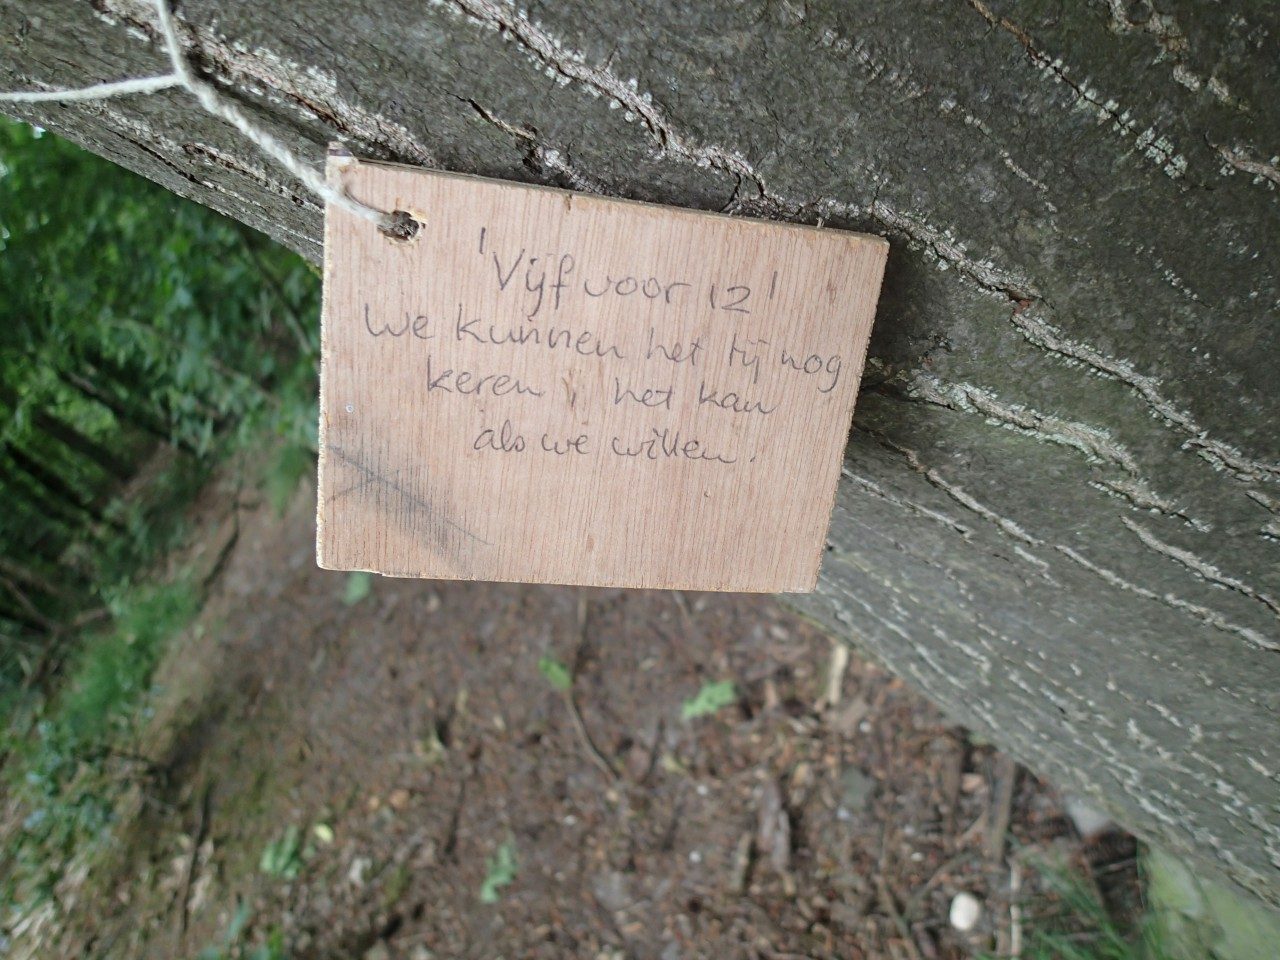 'Vijf voor 12'
We kunnen het tij nog
keren, het kan
als we willen.